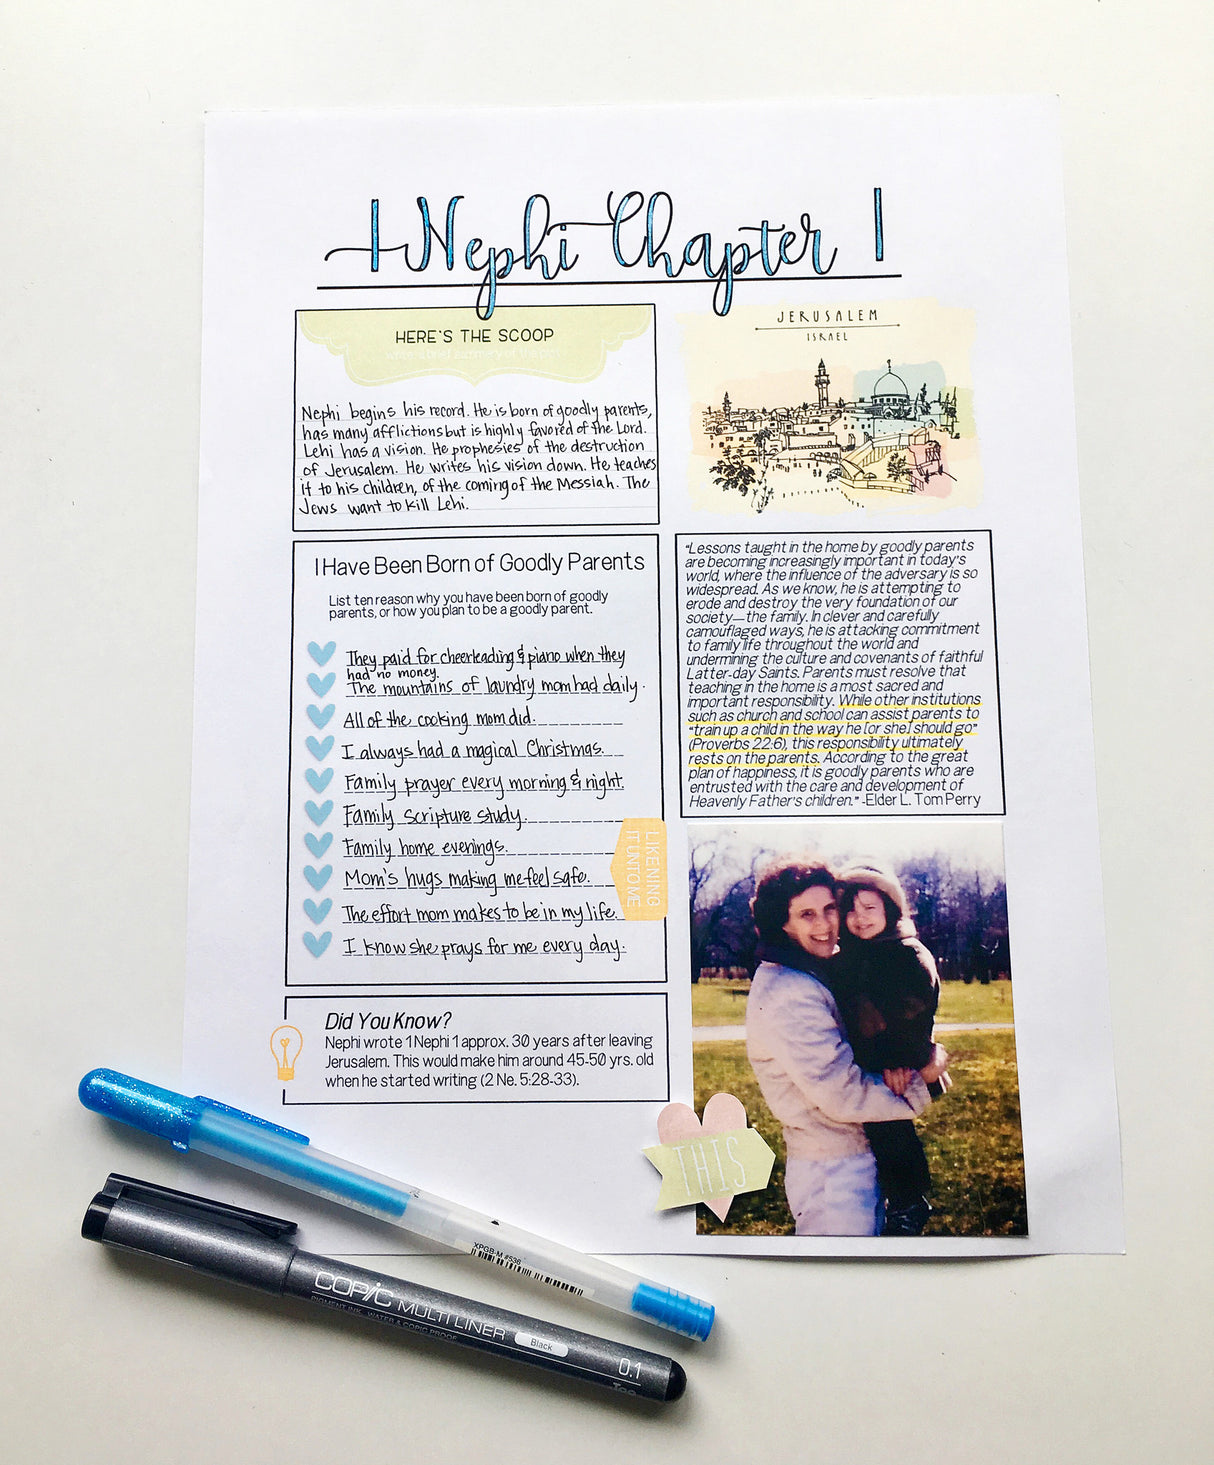 1 Nephi Chapter 1
HERE'S THE SCOOP
write a brief summery of the plot
Nephi begins his record. He is born of goodly parents,
has many afflictions but is highly favored of the Lord.
Lehi has a vision. He prophesies of the destruction
of Jerusalem. He writes his vision down. He teaches
it to his children, of the coming of the Messiah. The
Jews want to kill Lehi.
JERUSALEM
ISRAEL
I Have Been Born of Goodly Parents
List ten reason why you have been born of goodly
parents, or how you plan to be a goodly parent.
They paid for cheerleading & piano when they
had no money.
The mountains of laundry mom had daily.
All of the cooking mom did.
I always had a magical Christmas.
Family prayer every morning & night.
Family scripture study.
Family home evenings.
Mom's hugs making me feel safe.
The effort mom makes to be in my life.
I know she prays for me every day.
LIKENING
IT UNTO ME
"Lessons taught in the home by goodly parents
are becoming increasingly important in today's
world, where the influence of the adversary is so
widespread. As we know, he is attempting to
erode and destroy the very foundation of our
society—the family. In clever and carefully
camouflaged ways, he is attacking commitment
to family life throughout the world and
undermining the culture and covenants of faithful
Latter-day Saints. Parents must resolve that
teaching in the home is a most sacred and
important responsibility. While other institutions
such as church and school can assist parents to
"train up a child in the way he [or she] should go"
(Proverbs 22:6), this responsibility ultimately
rests on the parents. According to the great
plan of happiness, it is goodly parents who are
entrusted with the care and development of
Heavenly Father's children." -Elder L. Tom Perry
Did You Know?
Nephi wrote 1 Nephi 1 approx. 30 years after leaving
Jerusalem. This would make him around 45-50 yrs. old
when he started writing (2 Ne. 5:28-33).
THIS
XPGB-M #536
COPIC MULTILINER
PIGMENT INK, WATER & COPIC PROOF
Black
0.1
Too